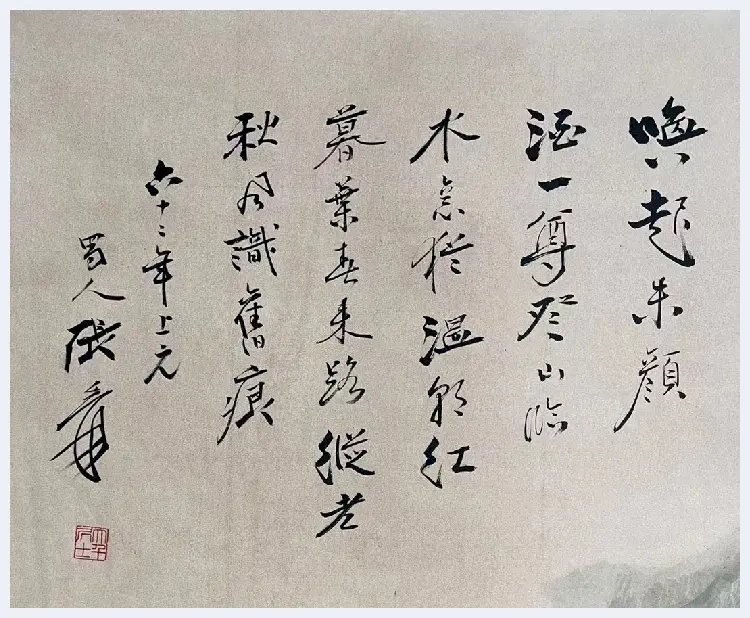 喚起朱顏
酒一尊登山臨
水意猶溫朝紅
暮葉春來路縱老
秋風識舊痕
六十二年上元
蜀人張爰
大千居士